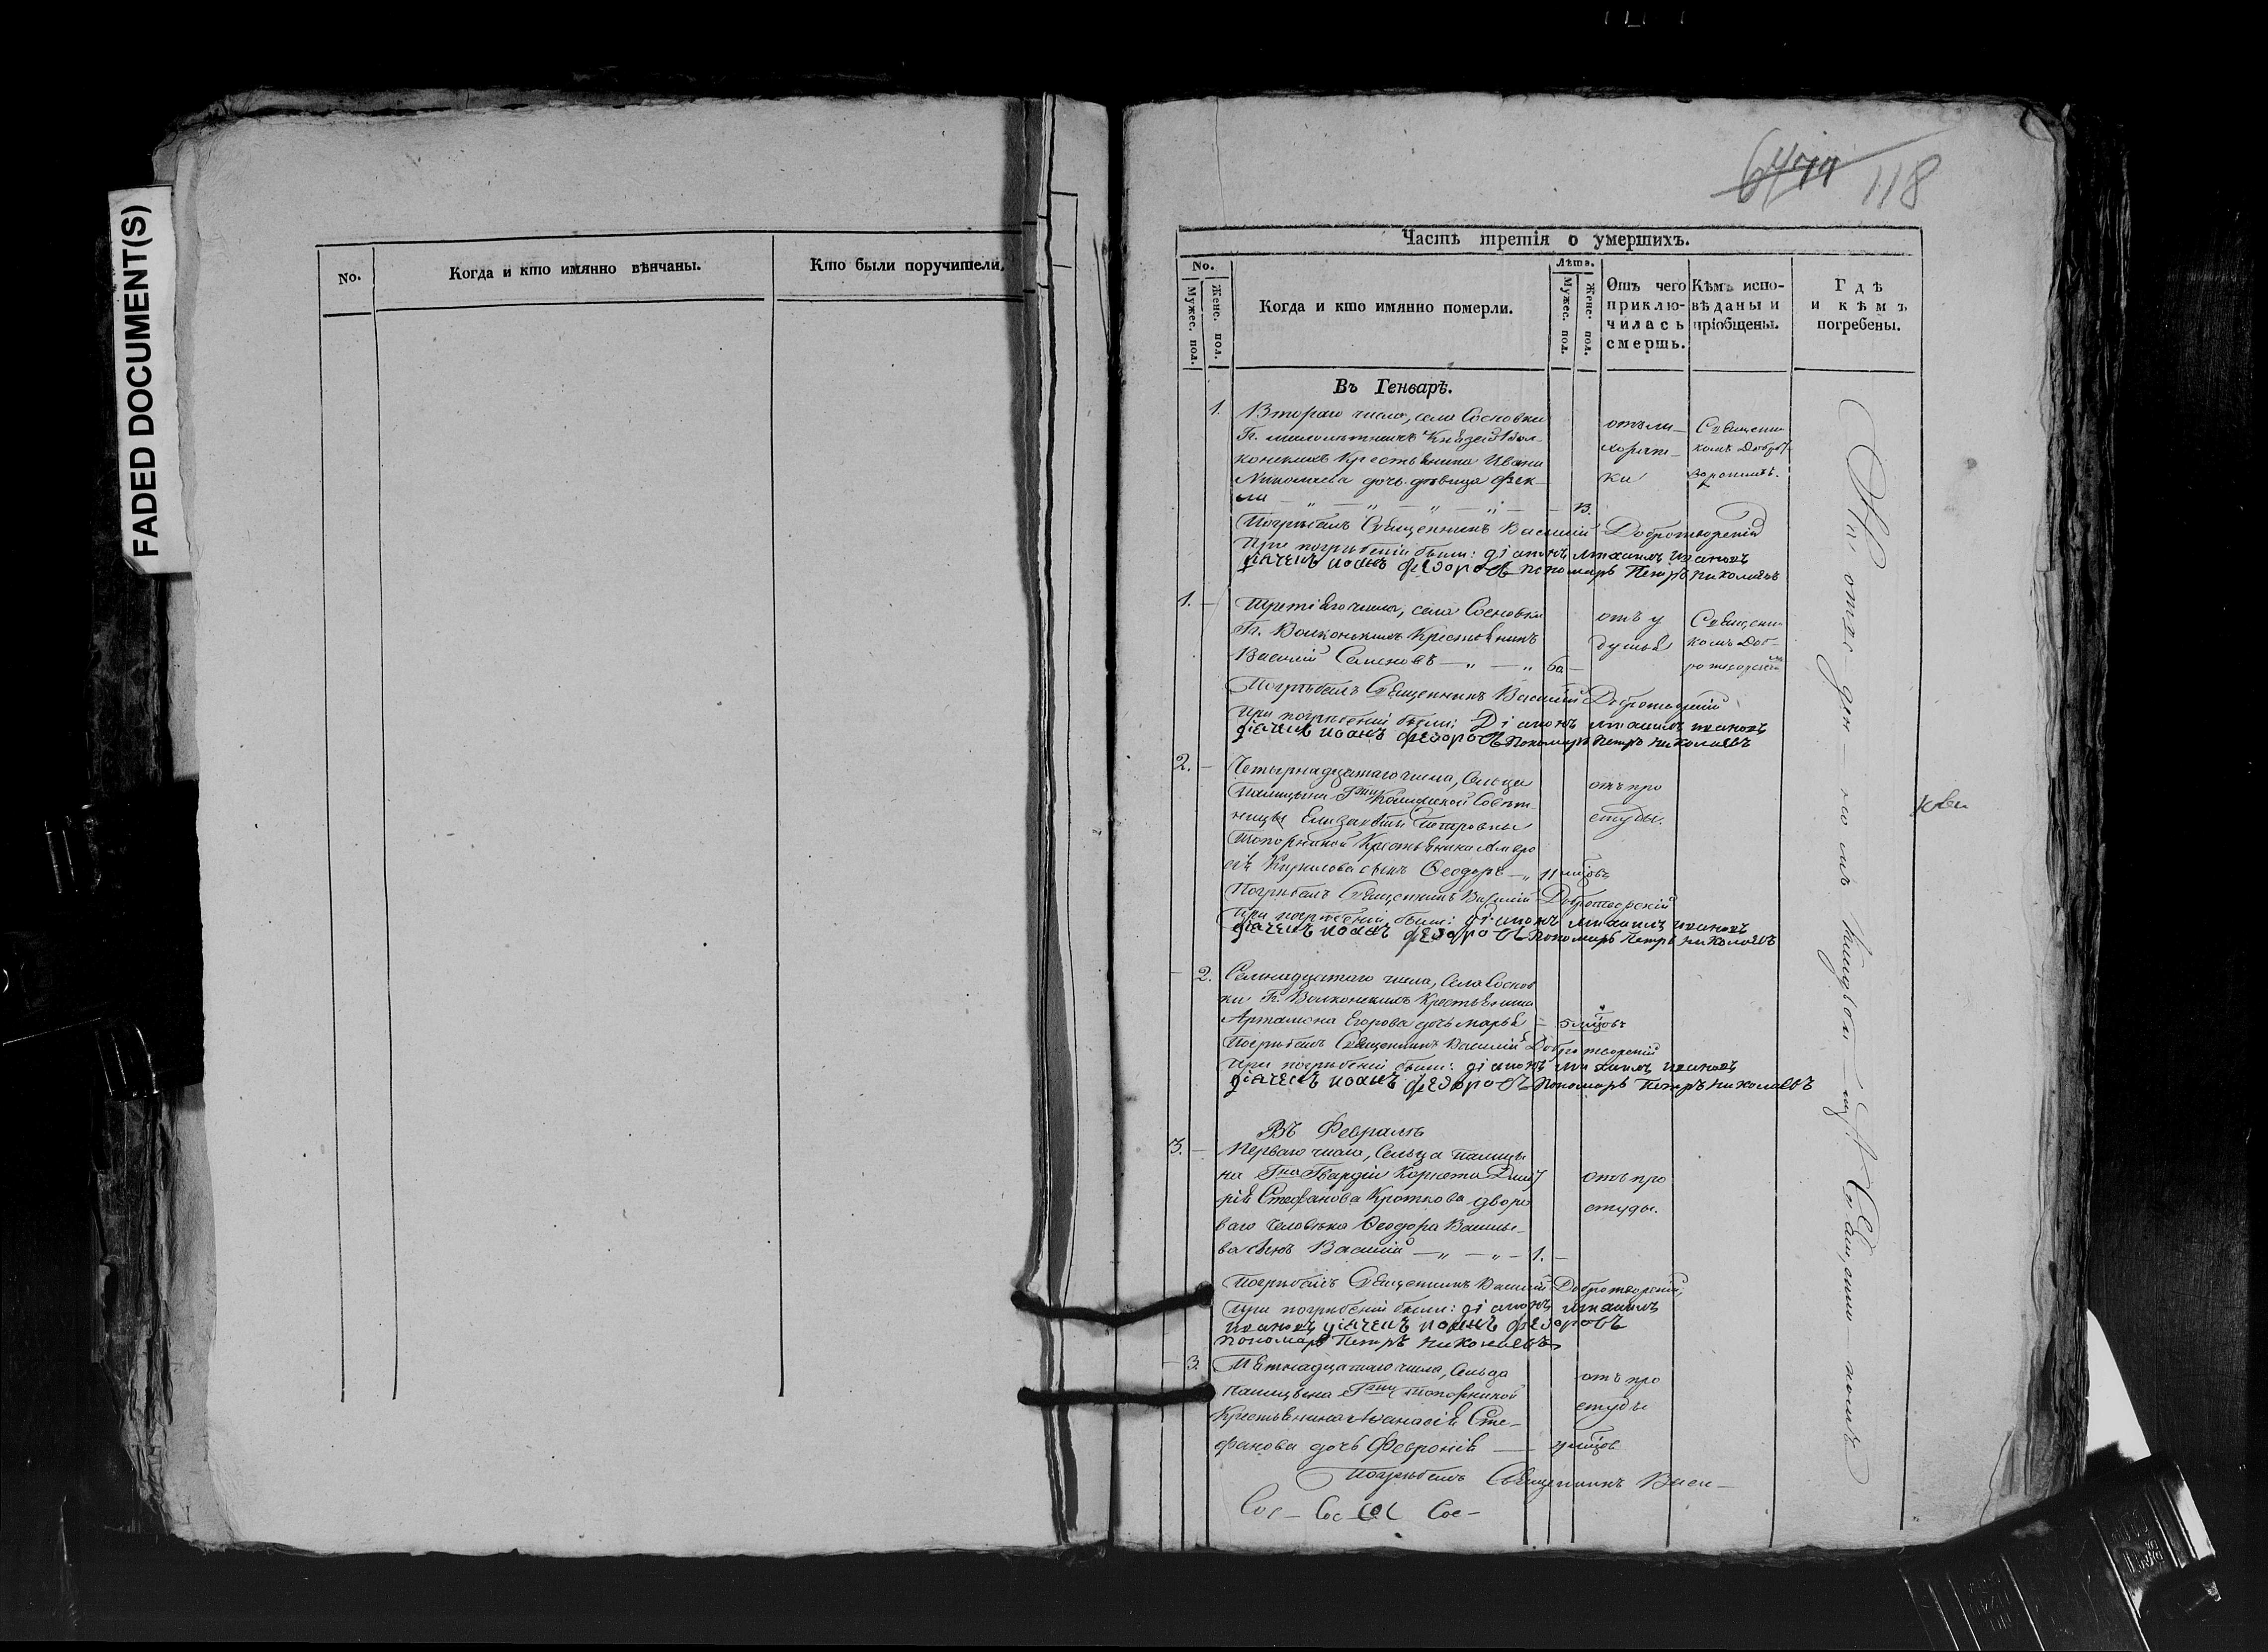 FADED DOCUMENT(S)
No.
Когда и кто имянно вѣнчаны.
Кто были поручители.
118
Часть третія о умершихъ.
No.
Мужес. пол.
Женс. пол.
Когда и кто имянно померли.
Лѣта.
Мужес. пол.
Женс. пол.
Отъ чего
приклю-
чилась
смерть.
Кѣмъ испо-
вѣданы и
пріобщены.
Гдѣ
и кѣмъ
погребены.
Въ Генварѣ.
1.
Втораго числа, села Сосновки
Князей Вол-
конскихъ Крестьянина Ивана
Николаева дочь девица Фек-
ла
отъ ли-
хорат-
ки
Священи-
комъ Добро
Погребалъ Священникъ Василий Добротворский
При погребеніи были: діаконъ михаилъ ивановъ
діачекъ иоанъ федоровъ пономарь Петръ николаевъ
1.
Третіяго числа, села Сосновки
Гг. Волконскихъ Крестьянинъ
Василий Семеновъ
отъ у
душья
Священи-
комъ Доб-
Погребалъ Священникъ Василий Добротворский
При погребеніи были: Діаконъ михаилъ ивановъ
діачекъ иоанъ федоровъ Пономарь Петръ николаевъ
2.
Четырнадцатаго числа, Сельца
Палицына Гжи Советн
ницы Елизаветы Петровны
Топорниной Крестьянина Амвро
сія Кирилова сынъ Феодоръ 11 мцовъ
отъ про
студы.
Погребалъ Священникъ Василий Добротворский
При погребеніи были: діаконъ михаилъ ивановъ
діачекъ иоанъ федоровъ Пономарь Петръ николаевъ
2.
Семнадцатаго числа, Села Соснов
ки Гг. Волконскихъ Крестьянина
Артамона Егорова дочь марья 5 мцовъ
Погребалъ Священникъ Василий Добротворский
При погребеніи были: діаконъ михаилъ ивановъ
діачекъ иоанъ федоровъ Пономарь Петръ николаевъ
Въ Февралѣ
3.
Перваго числа, Сельца палицы
на Гна Гвардіи Корнета Дмит
рія Стефанова Кроткова дворо
ваго человека Феодора Василье-
ва сынъ Василий 1.
отъ про
студы.
Погребалъ Священникъ Василий Добротворский,
При погребеніи были: діаконъ михаилъ
ивановъ діачекъ иоанъ федоровъ
пономарь Петръ николаевъ
3.
Пятнадцатаго числа, Сельца
палицына Гжи топорниной
Крестьянина Афанасія Сте-
фанова дочь Февронія
отъ про
студы
Погребалъ Священникъ Васи-
Сос- Сос- Сос Сос-
На отве-ден-